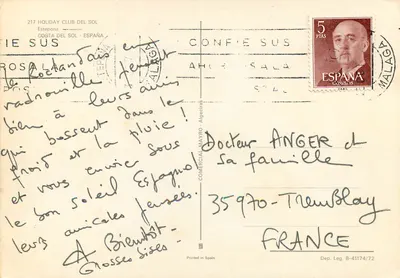 217 HOLIDAY CLUB DEL SOL
COSTA DEL SOL - ESPAÑA
en
vadrouille
bien à leurs amis
qui bossent dans le
froid et la pluie !
et vous envoier sous
le bon soleil Espagnol
leurs amicales pensées.
A Bientôt -
Grosses bises -
CONFIE SUS
MALAGA
CONFIE SUS
AHORROS A LA
5
PTAS
ESPAÑA
CORREOS
MALAGA
Docteur ANGER et
sa famille
35970 - Tremblay
FRANCE
Printed in Spain
Dep. Leg. B-41174/72